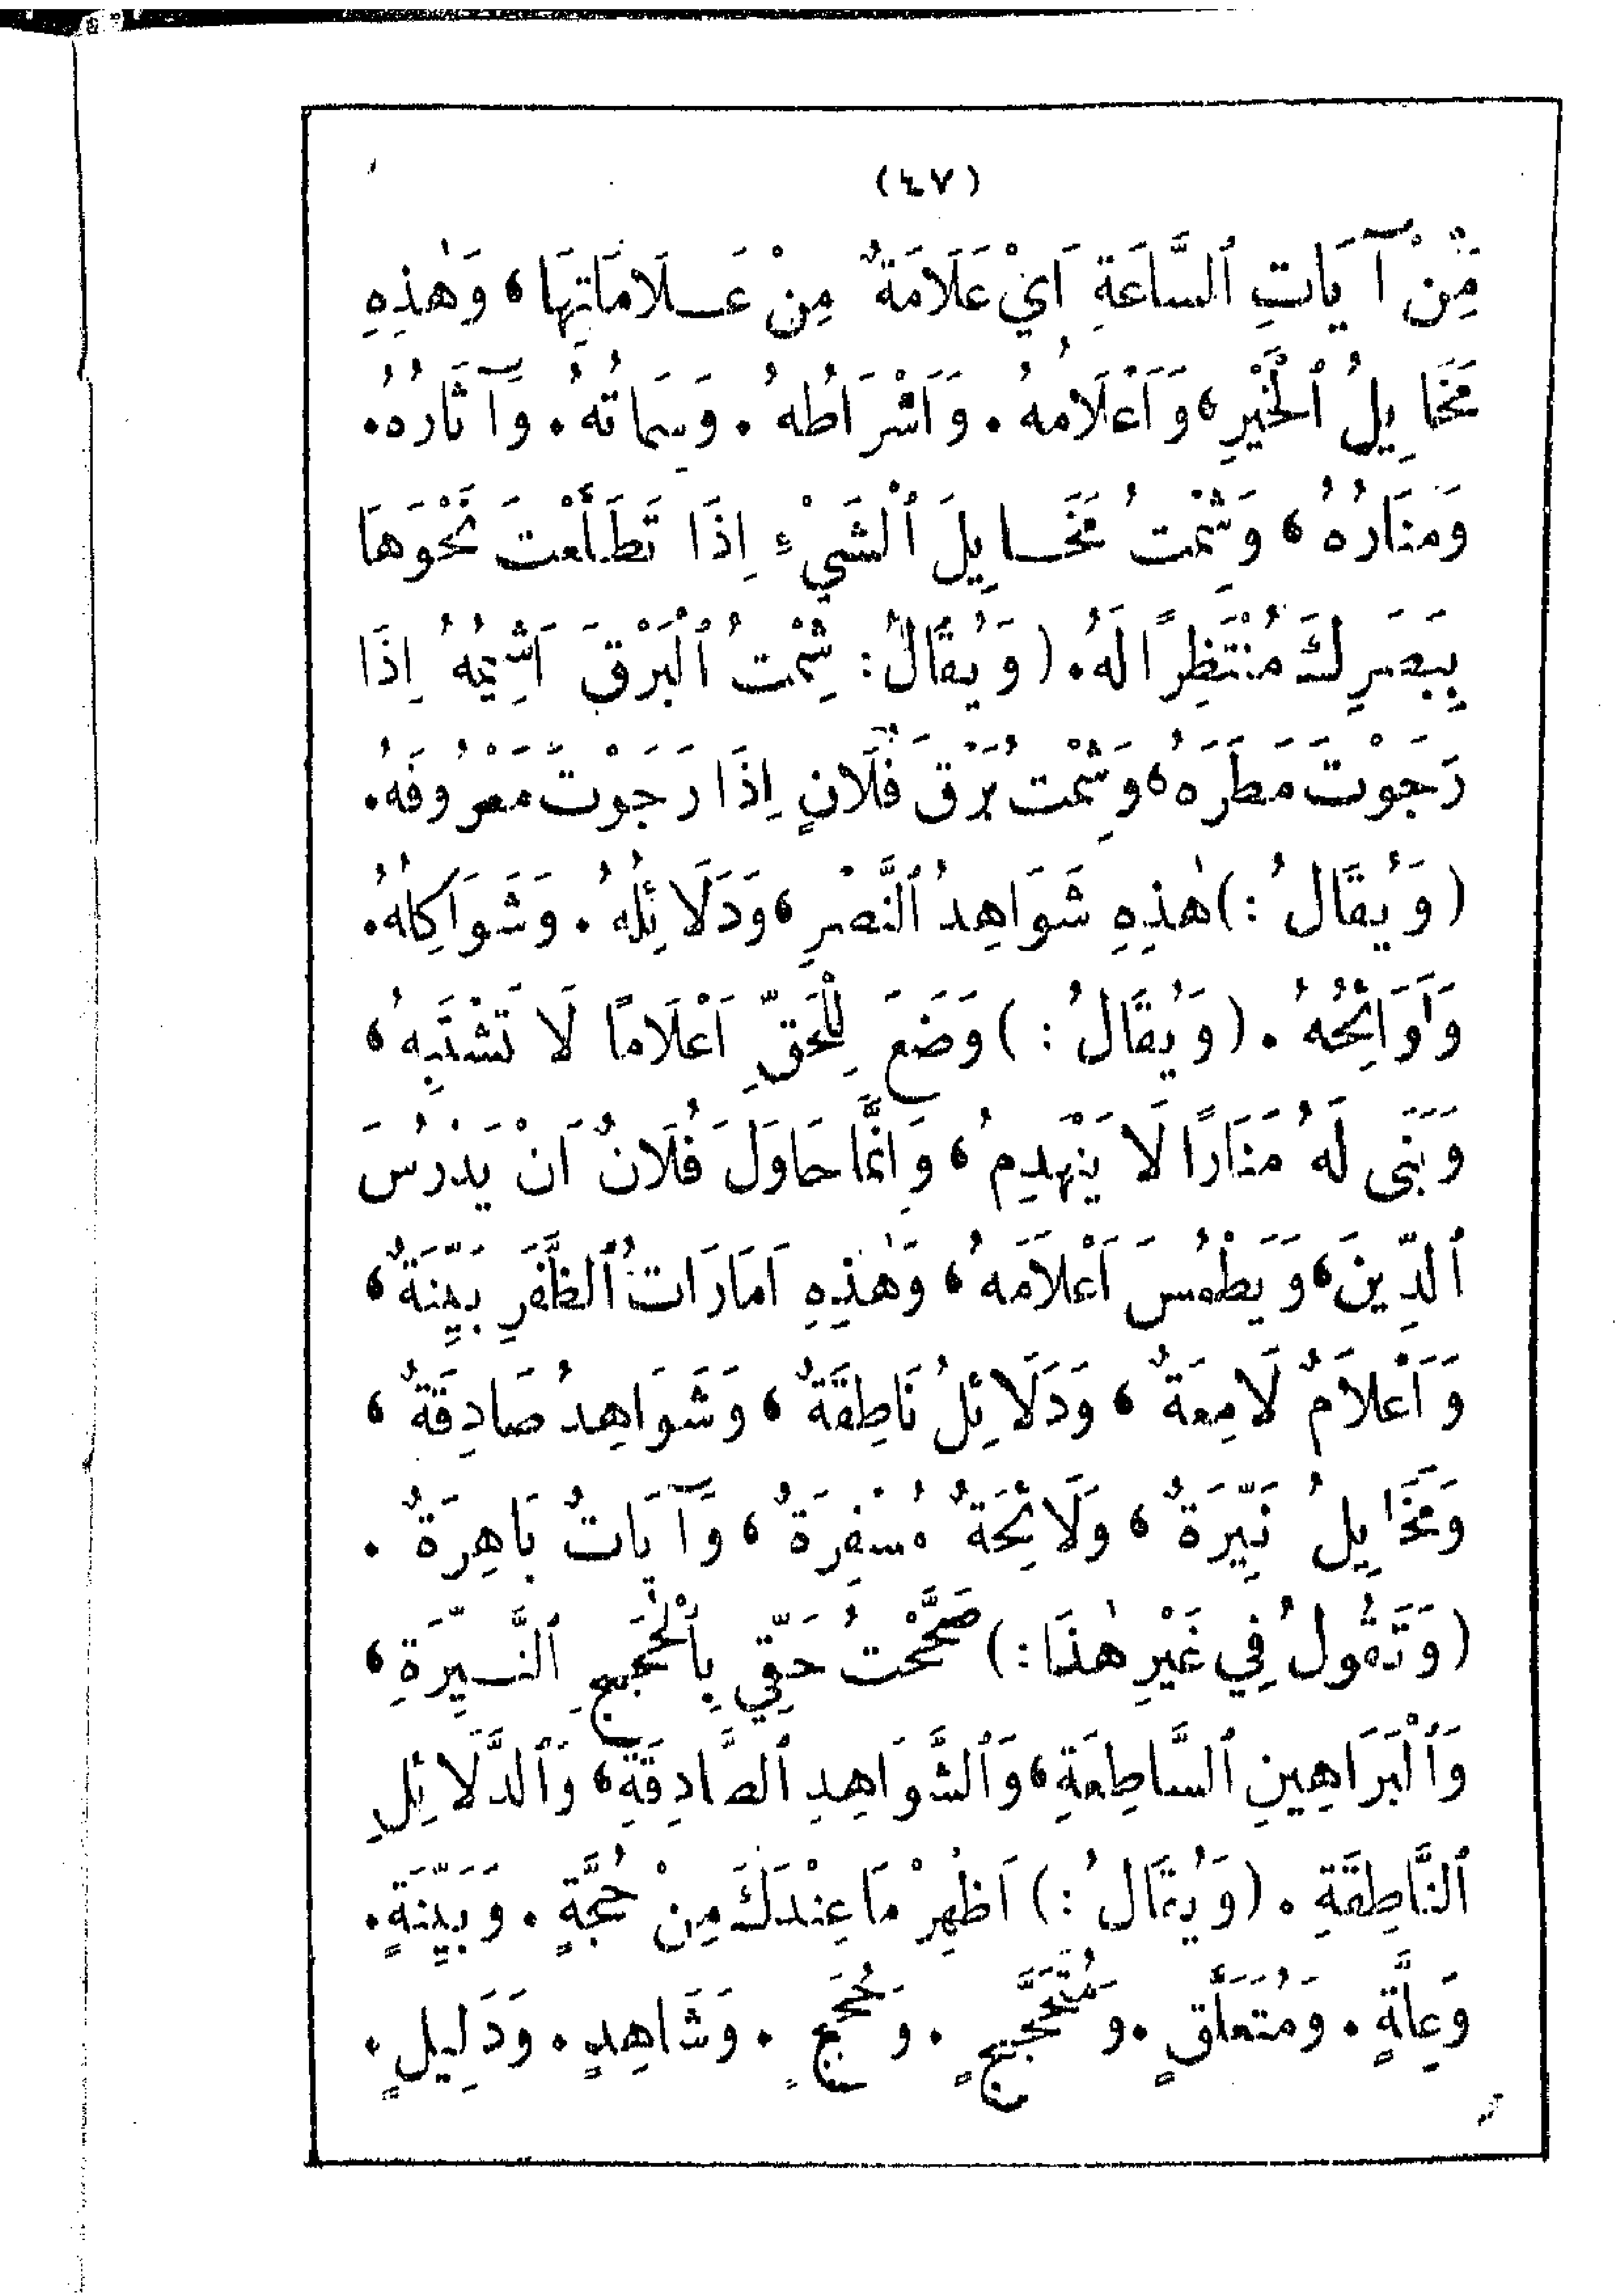 (٤٧)
مِّنْ آيَاتِ ٱلسَّاعَةِ اَيْ عَلَامَةٌ مِنْ عَـلَامَاتِهَا، وَهٰذِهِ
مَخَايِلُ ٱلْخَيْرِ، وَاَعْلَامُهُ. وَاَشْرَاطُهُ. وَسِمَاتُهُ. وَآثَارُهُ.
وَمَنَارُهُ، وَشِمْتُ مَخَـايِلَ ٱلْشَيْءِ اِذَا تَطَلَّعْتَ نَحْوَهَا
بِبَصَرِكَ مُنْتَظِرًا لَهُ. (وَيُقَالُ: شِمْتُ ٱلْبَرْقَ اَشِيمُهُ اِذَا
رَجَوْتَ مَطَرَهُ، وَشِمْتُ بَرْقَ فُلَانٍ اِذَا رَجَوْتَ مَعْرُوفَهُ.
(وَيُقَالُ:) هٰذِهِ شَوَاهِدُ ٱلنَّصْرِ، وَدَلَائِلُهُ. وَشَوَاكِلُهُ.
وَلَوَائِحُهُ. (وَيُقَالُ:) وَضَعَ لِلْحَقِّ اَعْلَامًا لَا تَشْتَبِهُ،
وَبَنَى لَهُ مَنَارًا لَا يَنْهَدِمُ، وَاِنَّمَا حَاوَلَ فُلَانٌ اَنْ يَدْرُسَ
ٱلدِّينَ، وَيَطْمُسَ اَعْلَامَهُ، وَهٰذِهِ اَمَارَاتُ ٱلظَّفَرِ بَيِّنَةٌ،
وَاَعْلَامٌ لَامِعَةٌ، وَدَلَائِلُ نَاطِقَةٌ، وَشَوَاهِدُ صَادِقَةٌ،
وَمَخَايِلُ نَيِّرَةٌ، وَلَائِحَةٌ مُسْفِرَةٌ، وَآيَاتٌ بَاهِرَةٌ.
(وَتَقُولُ فِي غَيْرِ هٰذَا:) صَحَّحْتُ حَقِّي بِٱلْحُجَجِ ٱلنَّـيِّرَةِ،
وَٱلْبَرَاهِينِ ٱلسَّاطِعَةِ، وَٱلشَّوَاهِدِ ٱلصَّادِقَةِ، وَٱلدَّلَائِلِ
ٱلنَّاطِقَةِ. (وَيُقَالُ:) اَظْهِرْ مَا عِنْدَكَ مِنْ حُجَّةٍ. وَبَيِّنَةٍ.
وَعِلَّةٍ. وَمُتَعَلَّقٍ. وَمُتَحَجَّجٍ. وَحُجَجٍ. وَشَاهِدٍ. وَدَلِيلٍ.